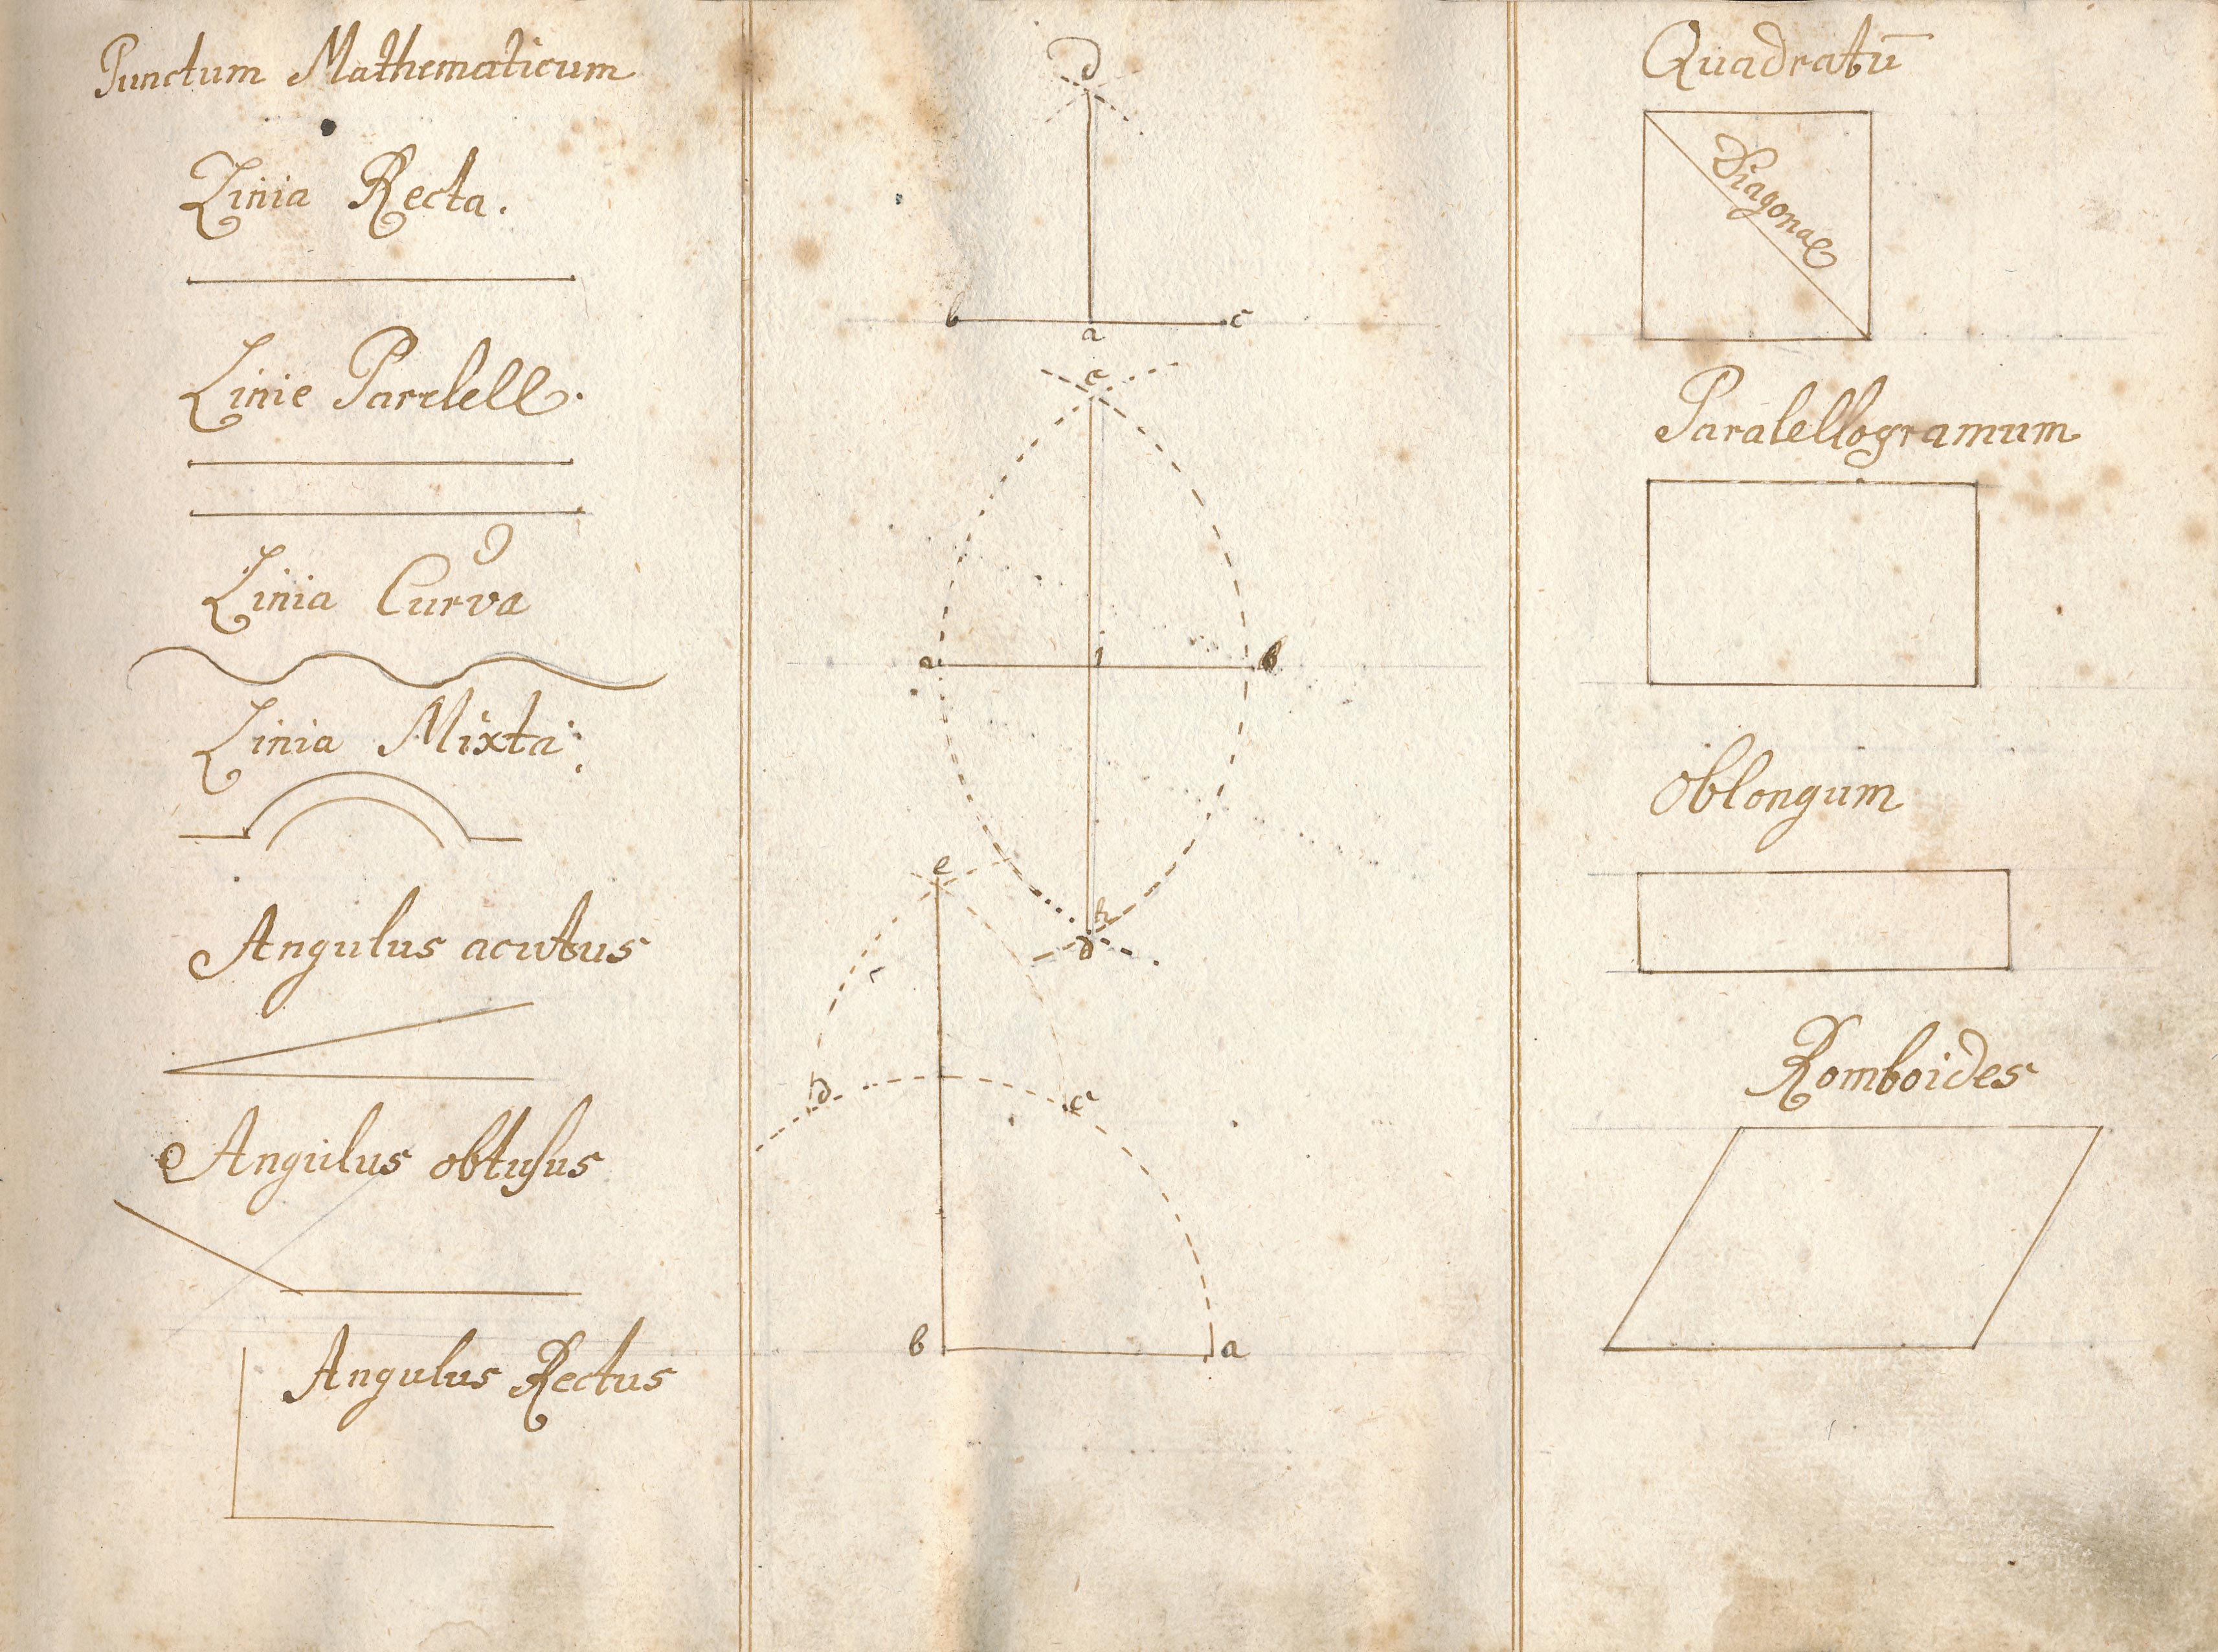 Punctum Mathematicum
Linia Recta.
Linie Parelell.
Linia Curva
Linia Mixta:
Angulus acutus
Angulus obtusus
Angulus Rectus
d
b
a
c
c
a
i
b
d
e
d
c
b
a
Quadratū
Diagonal
Paralellogramum
oblongum
Romboides